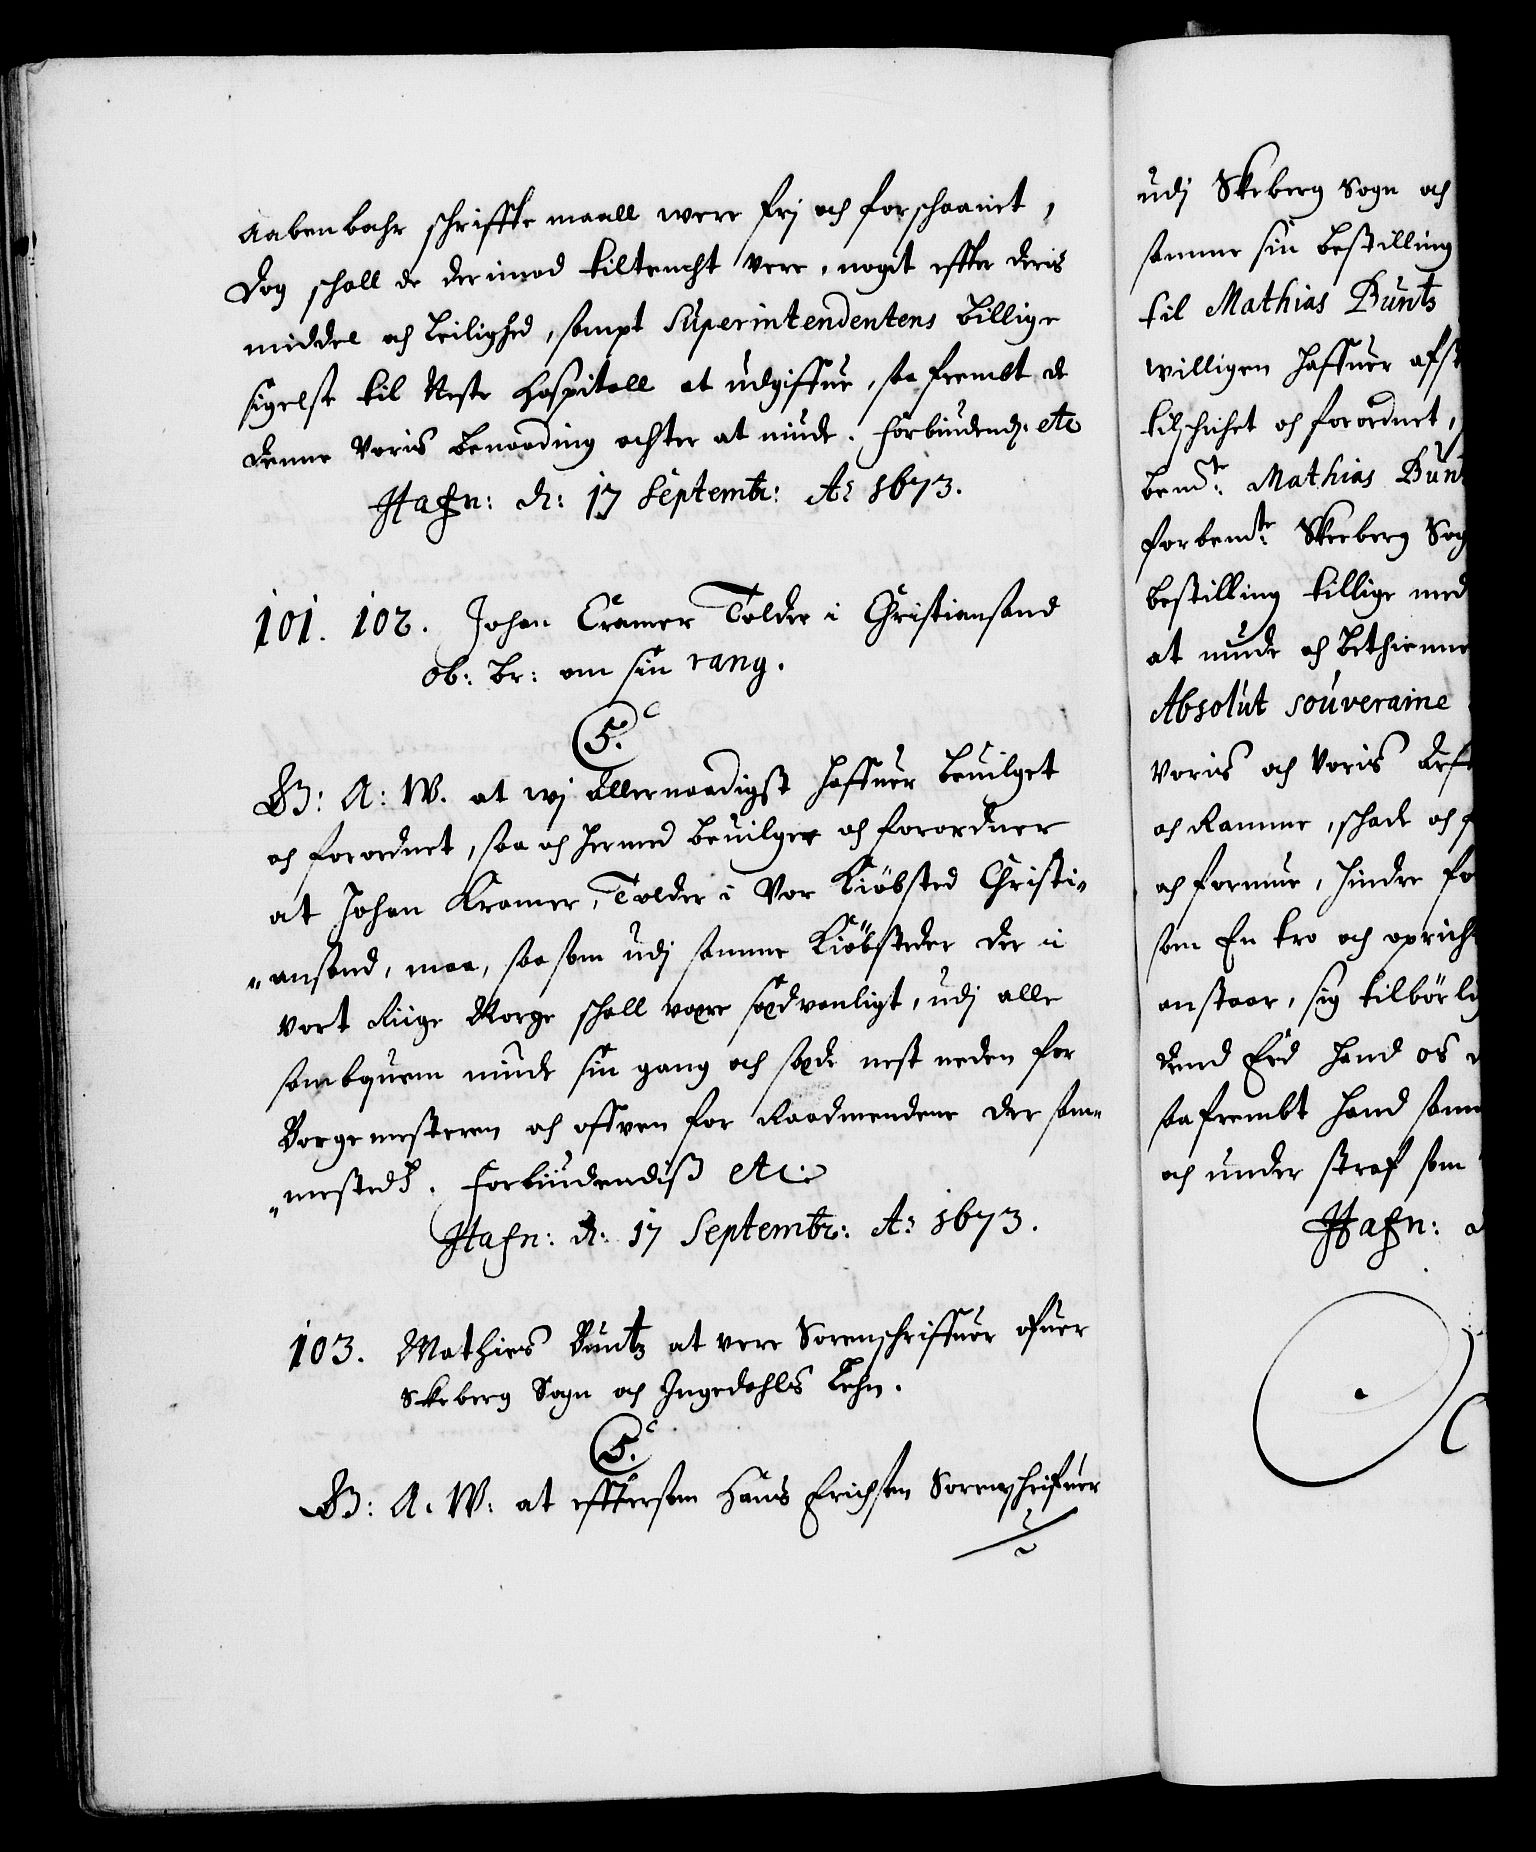 aabenbahr schriffte maall were frj och forschaanit,
Dog schall de derimod tiltencht vere, noget effter deris
middel och leilighed, sampt Superintendentens billige
sigelse til Neste Hospitall at udgiffue, saa frembt de
denne Voris benaading achter at niude. Forbiudend: etc
Hafn: d: 17 Septembr: Ao 1673.
101. 102. Johan Cramer Tolder i Christiansand
ob: br: om sin rang.
C 5.
G: A: W. at wj Allernaadigst haffuer beuilget
och forordnet, saa och hermed beuilger och forordner
at Johan Kramer, Tolder i Vor Kiöbsted Christi-
ansand, maa, saasom udj samme Kiöbsteder der i
vort Riige Norge schall være sædvanligt, udj alle
sambquem niude sin gang och sæde nest neden for
Borgemesteren och offven for Raadmendene der sam-
mesteds. Forbiudendiß etc:
Hafn: d: 17 Septembr: Ao 1673.
103. Mathies Buntz at vere Sorenschriffuer ofuer
Skeberg Sogn och Ingedahls Lehn.
C 5.
G: A: W: at efftersom Hans Erichsen Sorenschrifuer
udj Skeberg Sogn och
samme sin bestilling
til Mathias Buntz
willigen haffuer afst
tilschichet och forordnet,
bemte: Mathias Bunt
forbemte: Skeeberg Sog
bestilling tillige med
at niude och bethienne
Absolut souveraine
Voris och Voris Arf
och Ramme, schade och f
och formue, hindre fo
som En tro och opricht
anstaar, sig tilbörlig
dend Eed hand os
saafrembt hand samm
och under straf som
Hafn: d